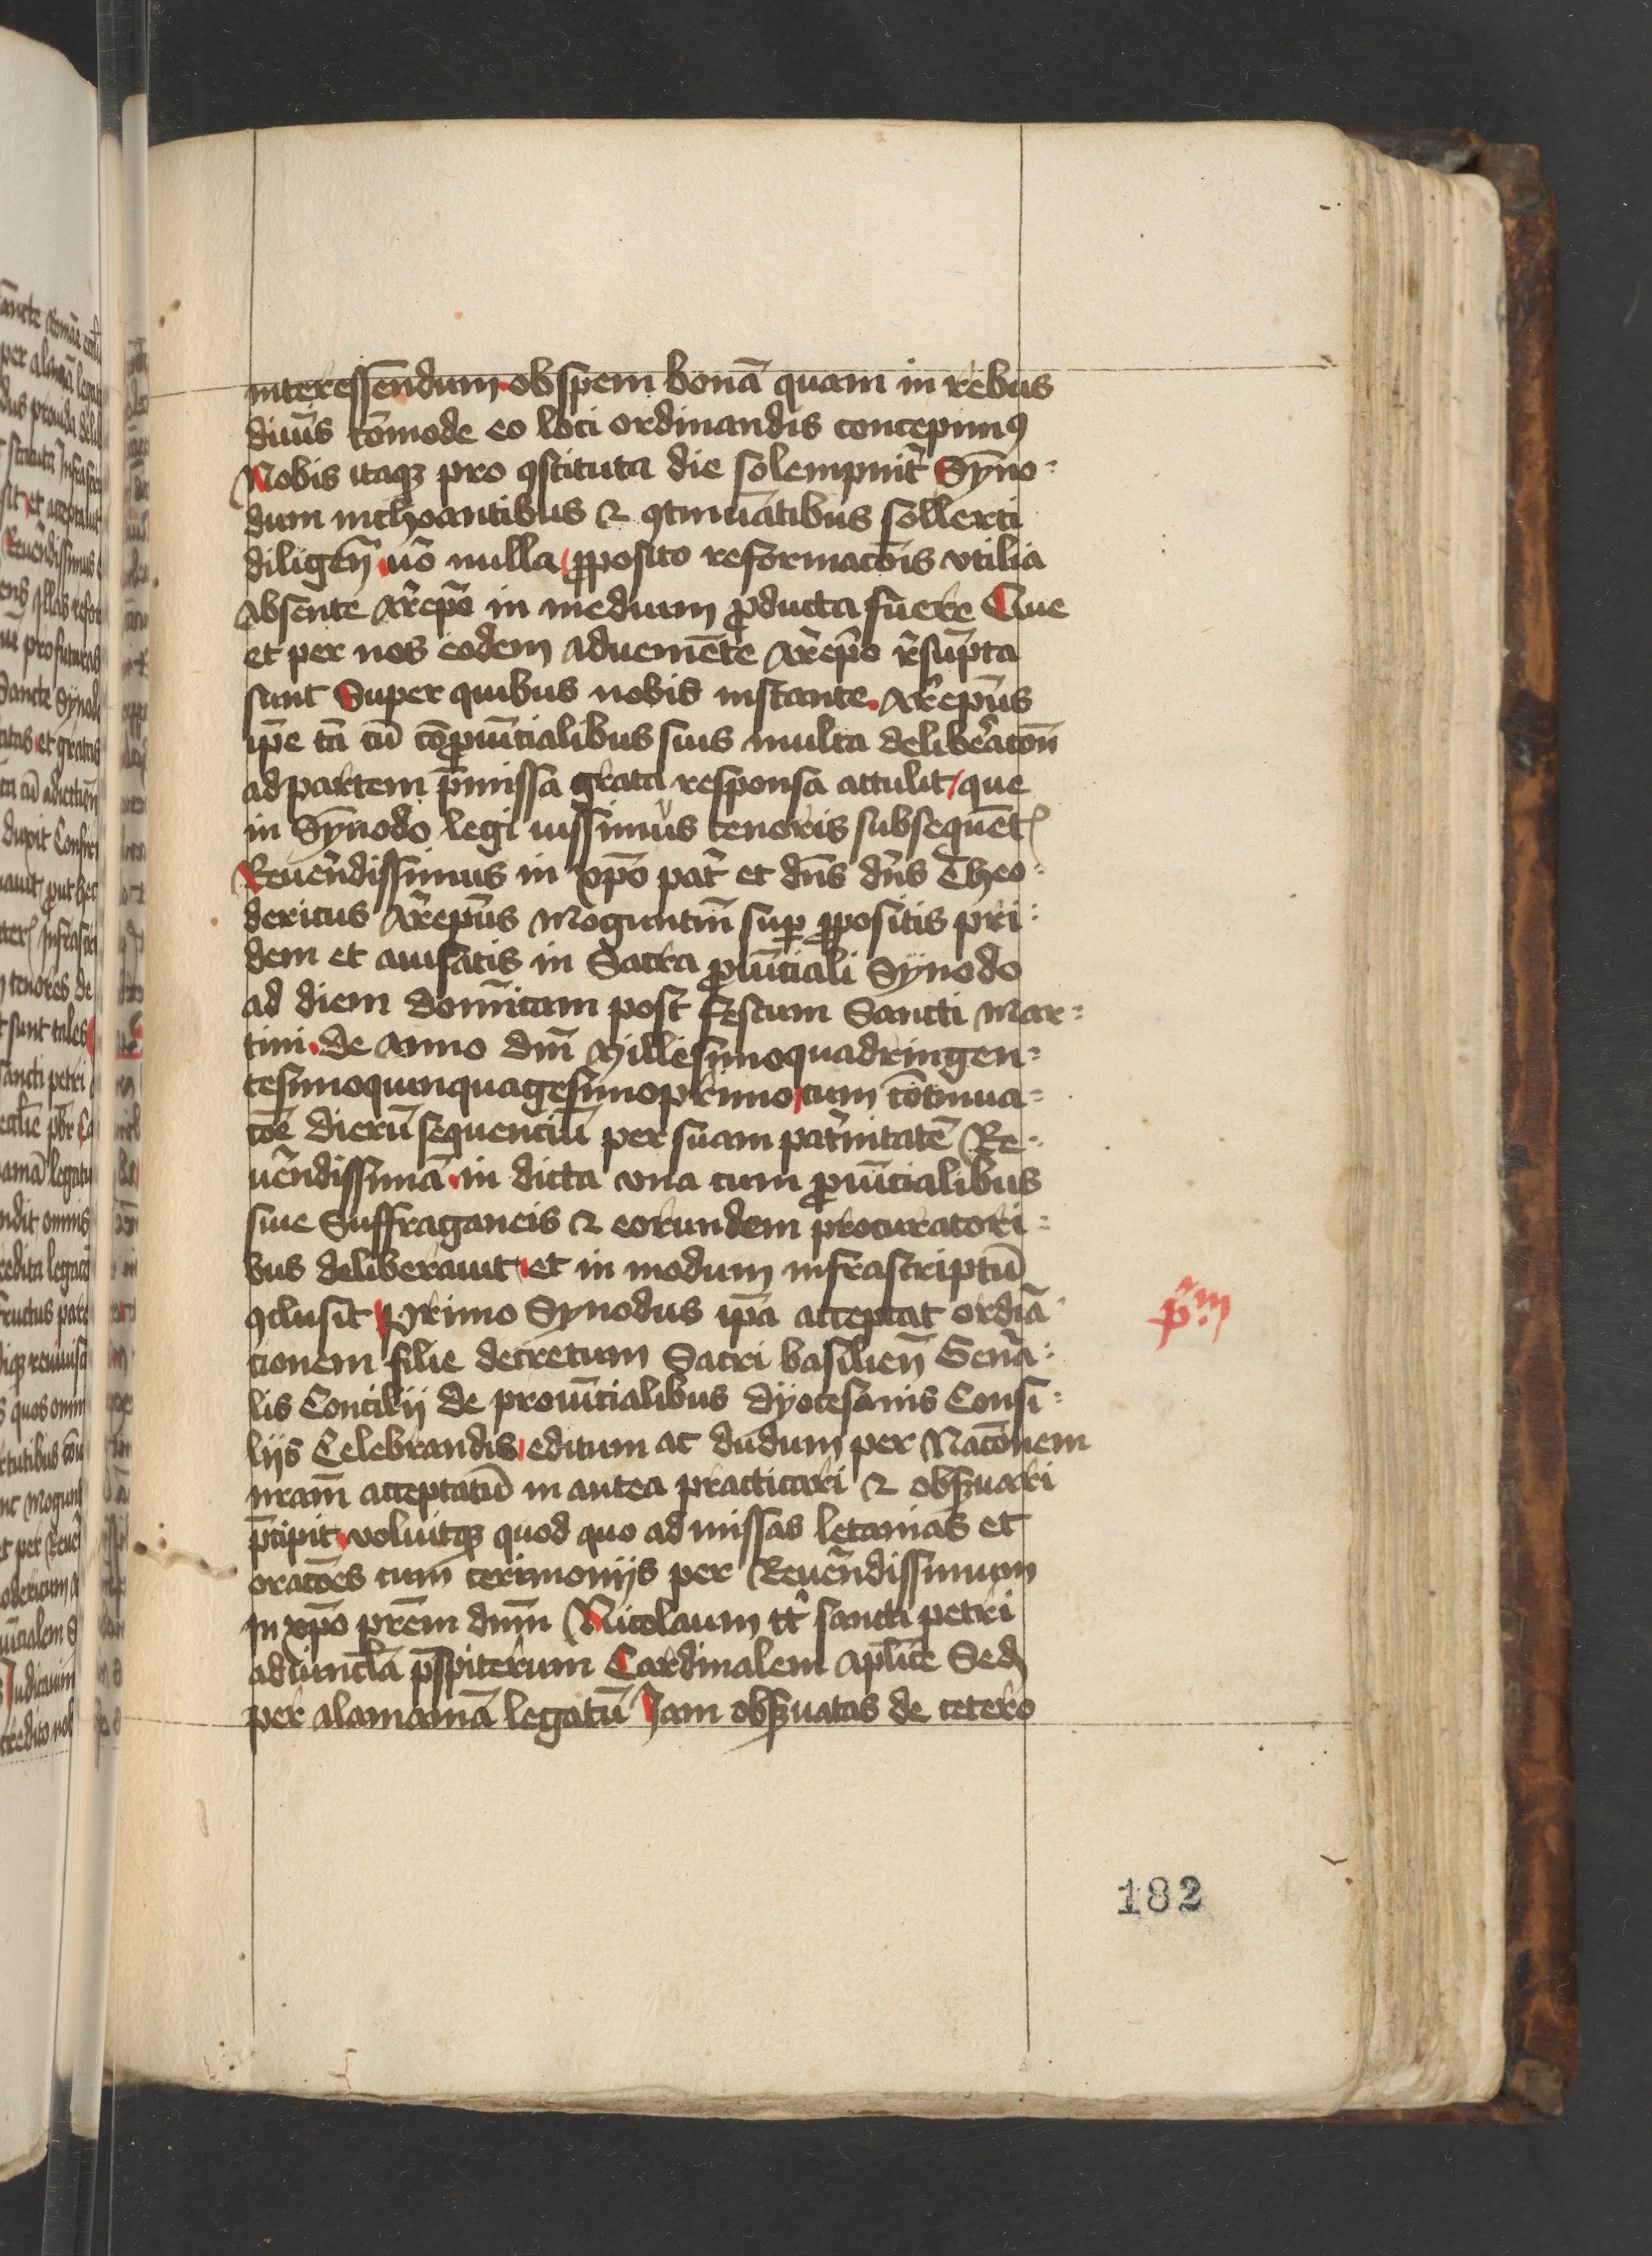 interessendum obspem bonā quam in rebus
diuīs cōmode eo loci ordinandis concepimꝰ
Nobis itaqꝫ pro ꝯstituta die solempnit̄ Syno-
dum inchoantibus ⁊ ꝯtinuātibus sollerti
diligen̄ nō nulla ꝓposito reformacōis vtilia
absente Ar̄ep̄o in medium ꝓducta fuere Que
et per nos eodem adueniēte Ar̄ep̄o r̄sūpta
sunt Super quibus nobis instante Ar̄ep̄us
ip̄e tā cū cōꝓuīcialibus suis multa deliberacōn
ad partem p̄missa grata responsa attulit que
in Synodo legi iussimus tenoris subsequēt
Reuerēdissimus in xp̄o pat̄ et dn̄s dn̄s Theo-
dericus Ar̄ep̄us Moguntin̄ suꝑ ꝓpositis pri-
dem et auisatis in Sacra ꝓuīciali Synodo
ad diem domīcam post festum Sancti Mar-
tini de Anno dn̄i Millesimoquadringen-
tesimoquinquagesimoprimo cum cōtinua-
cōe dierū sequenciū per suam pat̄nitatē Re-
uēndissimā in dicta vna cum ꝓuīcialibus
siue Suffraganeis ⁊ eorundem procuratori-
bus deliberauit et in modum infrascriptū
ꝯclusit Primo Synodus ip̄a acceptat ordīa
p̄m
cionem siue decretum Sacri basilien̄ Genā-
lis Concilij de prouīcialibus dyocesanis Consi-
liis Celebrandis editum ac dudum per Nacōnem
nram̄ acceptatū in antea practicari ⁊ obseruari
p̄cipit voluitqꝫ quod quo ad missas letanias et
oracōes cum cerimonijs per Reuerēdissimum
In xp̄o prēm dn̄m Nicolaum tt̄ sancti petri
ad vincl̄a p̄spiterum Cardinalem ap̄lice Sed
per alamaniā legatū Jam obseruatas de cetero
182